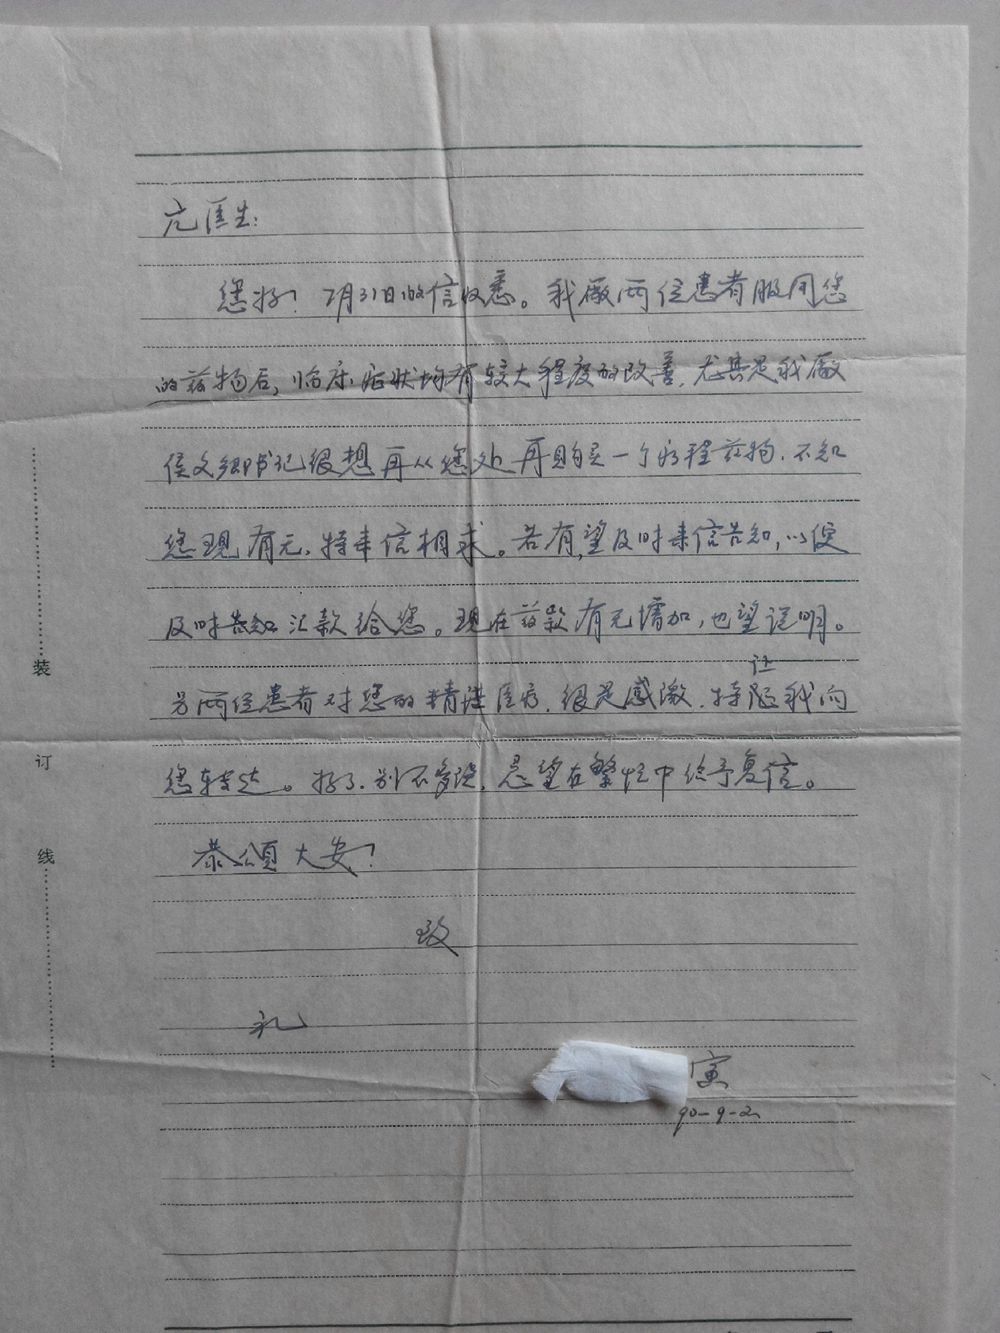 亢医生：
您好！7月31日的信收悉。我厂两位患者服用您
的药物后，临床症状均有较大程度的改善，尤其是我厂
侯文卿书记很想再从您处再购买一个疗程药物，不知
您现有无，特来信相求。若有，望及时来信告知，以便
及时告知汇款给您。现在药款有无增加，也望说明。
让
另两位患者对您的精湛医疗，很是感激，特我向
您转达。好了，别不多谈，恳望在繁忙中给予复信。
恭颂大安！
致
礼
寅
90-9-2
装
订
线